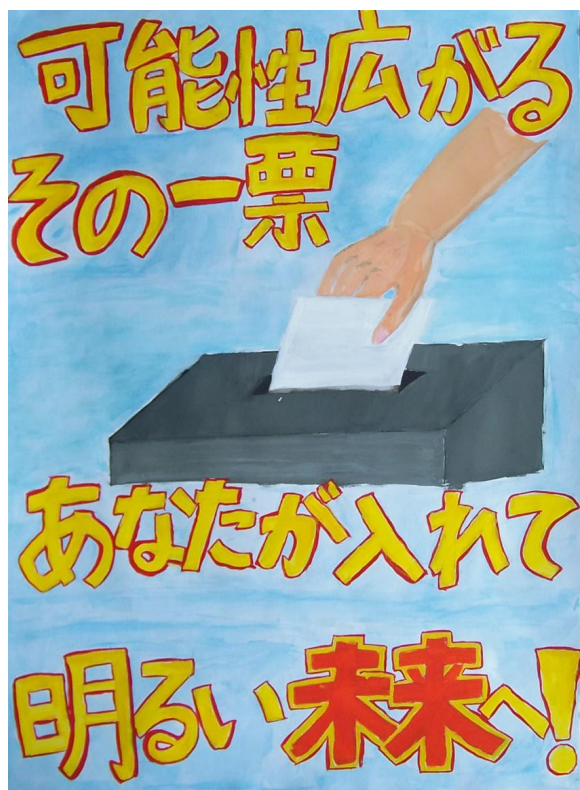 可能性広がる
その一票
あなたが入れて
明るい未来へ!